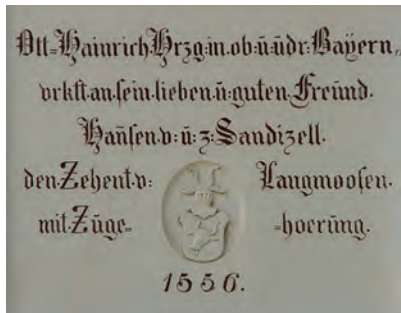 Ott=Hainrich Hrzg: in. ob: ü: üdr: Bayern,,
vrkft an sein lieben ü: guten Freünd.
Haüsen v: ü: z: Sandizell.
den Zehent v: Langmoosen.
mit Züge= =hoerüng.
1556.